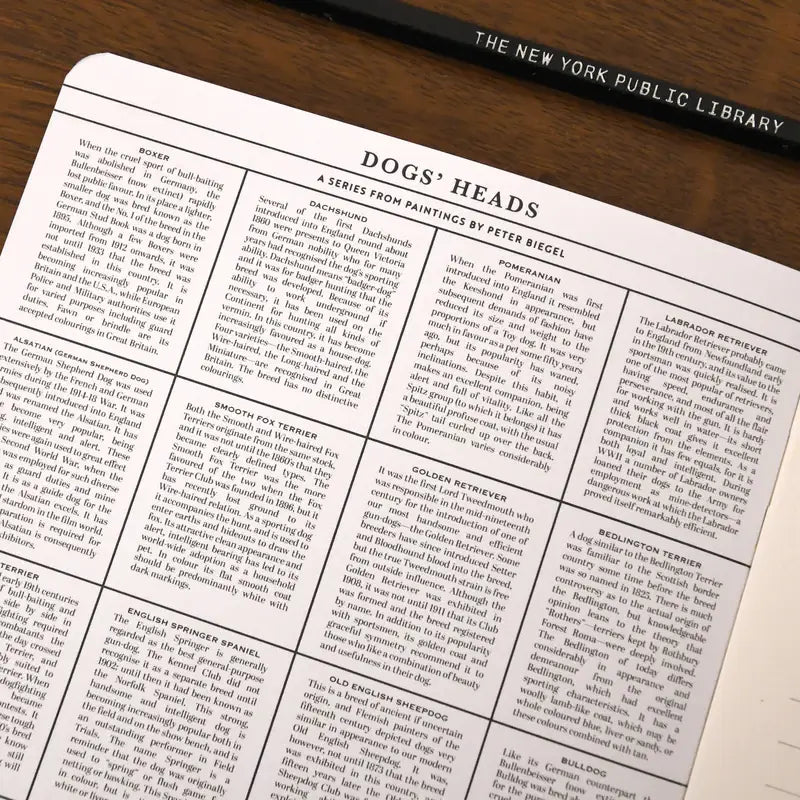 THE NEW YORK PUBLIC LIBRARY
DOGS' HEADS
A SERIES FROM PAINTINGS BY PETER BIEGEL
BOXER
When the cruel sport of bull-baiting
was abolished in Germany, the
Bullenbeisser (now extinct) rapidly
lost public favour. In its place a lighter,
smaller dog was bred known as the
Boxer, and the No. 1 of the breed in the
German Stud Book was a dog born in
1895. Although a few Boxers were
imported from 1912 onwards, it was
not until 1933 that the breed was
established in this country. It is
becoming increasingly popular in
Britain and the U.S.A. while European
Police and Military authorities use it
for varied purposes including guard
duties. Fawn or brindle are its
accepted colourings in Great Britain.
DACHSHUND
Several of the first Dachshunds
introduced into England round about
1860 were presents to Queen Victoria
from German nobility who for many
years had recognised the dog's sporting
ability. Dachshund means "badger-dog"
and it was for badger hunting that the
breed was developed. Because of its
ability to work underground if
necessary, it has been used on the
Continent for hunting all kinds of
vermin. In this country, it has become
increasingly favoured as a house-dog.
Four varieties—the Smooth-haired, the
Wire-haired, the Long-haired and the
Miniature—are recognised in Great
Britain. The breed has no distinctive
colourings.
POMERANIAN
When the Pomeranian was first
introduced into England it resembled
the Keeshond in appearance, but
subsequent demands of fashion have
reduced its size and weight to the
proportions of a Toy dog. It was very
much in favour as a pet some fifty years
ago, but its popularity has waned,
perhaps because of its noisy
inclinations. Despite this habit, it
makes an excellent companion, being
alert and full of vitality. Like all the
Spitz group (to which it belongs) it has
a beautiful profuse coat, with the usual
"Spitz" tail curled up over the back.
The Pomeranian varies considerably
in colour.
LABRADOR RETRIEVER
The Labrador Retriever probably came
to England from Newfoundland early
in the 19th century, and its value to the
sportsman was quickly realised. It is
one of the most popular of retrievers,
having speed, endurance and
perseverance, and most of all the flair
for working with the gun. It is hardy
and works well in water—its short
thick black coat gives it excellent
protection from the elements. As a
companion it has few equals, for it is
both loyal and intelligent. During
WWII a number of Labrador owners
loaned their dogs to the Army for
employment as mine-detectors—a
dangerous work at which the Labrador
proved itself remarkably efficient.
ALSATIAN (GERMAN SHEPHERD DOG)
The German Shepherd Dog was used
extensively by the French and German
armies during the 1914-18 War. It was
subsequently introduced into England
was renamed the Alsatian. It has
become very popular, being
intelligent and alert. These
were again used to great effect
Second World War, when the
was employed for such diverse
as guard duties and mine
It is a guide dog for the
the Alsatian excels. It has
stardom in the film world.
paration is required for
Alsatian is consequently
exhibitors.
SMOOTH FOX TERRIER
Both the Smooth and Wire-haired Fox
Terriers originate from the same stock,
and it was not until the 1860's that they
became clearly defined types. The
Smooth Fox Terrier was the more
favoured of the two when the Fox
Terrier Club was founded in 1896, but it
has recently lost ground to its
Wire-haired relation. As a sporting dog
it accompanies the hunt, and is used to
enter earths and hideouts to draw the
fox. Its attractive clean appearance and
alert, intelligent bearing has led to its
world-wide adoption as a household
pet. In colour its flat smooth coat
should be predominantly white with
dark markings.
GOLDEN RETRIEVER
It was the first Lord Tweedmouth who
was responsible in the mid-nineteenth
century for the introduction of one of
our most handsome and efficient
gun-dogs—the Golden Retriever. Some
breeders have since introduced Setter
and Bloodhound blood into the breed
but the true Tweedmouth strain is free
from outside influence. Although the
Golden Retriever was exhibited in
1908, it was not until 1911 that its Club
was formed and the breed registered
by name. In addition to its popularity
with sportsmen, its golden coat and
graceful symmetry recommend it to
those who like a combination of beauty
and usefulness in their dog.
BEDLINGTON TERRIER
A dog similar to the Bedlington Terrier
was familiar to the Scottish border
country some time before the breed
was so named in 1825. There is much
controversy as to the actual origin of
the Bedlington, but knowledgeable
opinion leans to the theory that
"Rothers"—terriers kept by Rothbury
Forest Roma—were deeply involved.
The Bedlington of today differs
considerably in appearance and
demeanour from the original
Bedlington, which had excellent
sporting characteristics. It has a
woolly lamb-like coat, which may be
whole coloured blue, liver or sandy, or
these colours combined with tan.
TERRIER
early 19th centuries
of bull-baiting and
side by side in
fighting required
combatants. The
the day crossed
Terrier and
suited to
terrier. When
dogfighting
became
contests. It
tough
bred
know
still
will
ENGLISH SPRINGER SPANIEL
The English Springer is generally
regarded as the best general purpose
gun-dog. The Kennel Club did not
recognise it as a separate breed until
1902; until then it had been known as
the Norfolk Spaniel. This strong
handsome and intelligent dog is
becoming increasingly popular both in
the field and on the show bench, and is
an outstanding performer in Field
Trials. The name Springer is a
reminder that the dog was originally
used to "spring" or flush game for
netting or hawking. This Spaniel
in colour, but is
white or liver
OLD ENGLISH SHEEPDOG
This is a breed of ancient if uncertain
origin, and Flemish painters of the
fifteenth century depicted dogs very
similar in appearance to our modern
Old English Sheepdog. It was,
however, not until 1873 that the breed
fifteen years later the Old
Sheepdog Club was
working
BULLDOG
Like its German counterpart the
Bullenbeisser (now extinct)
Bulldog was bred
for the